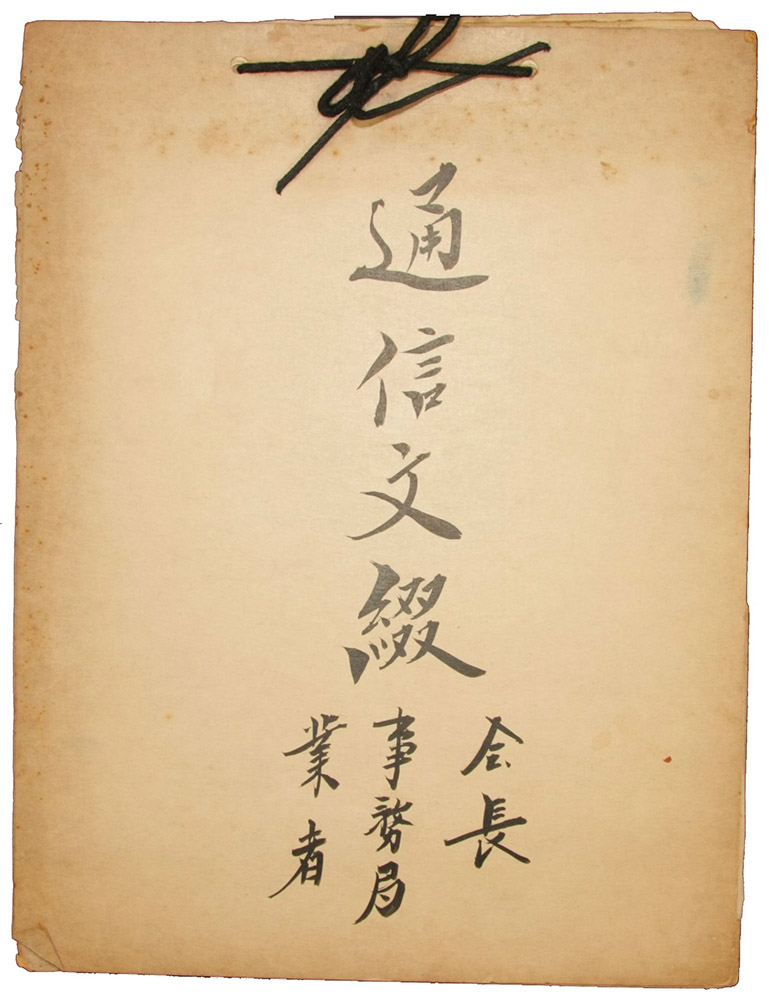 通信文綴
会長
事務局
業者